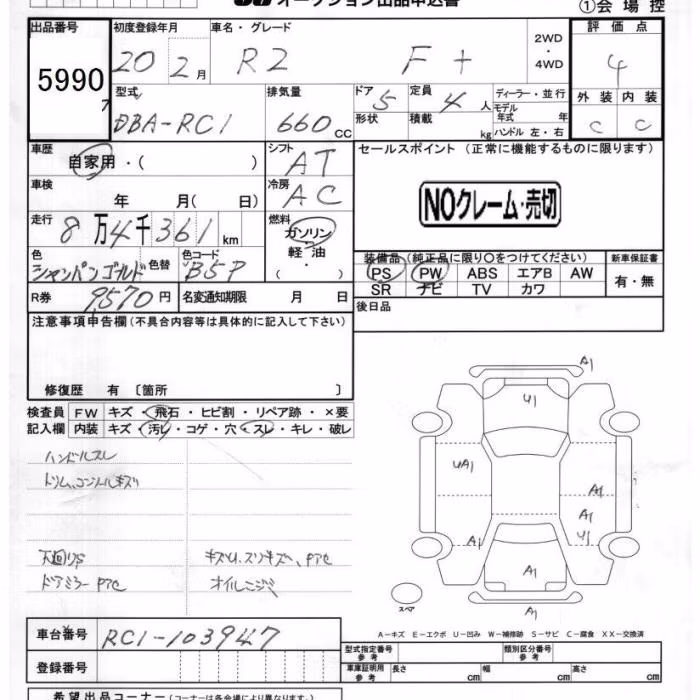 オークション出品申込書
①会場控
出品番号 初度登録年月 車名・グレード 2WD・4WD 評価点
5990
20 2月 R2 F+ 4
型式 排気量 ドア 定員 ディーラー・並行 外装 内装
DBA-RC1 660 CC 5 4人 モデル年式 年 C C
形状 積載 kg ハンドル 左・右
車歴 シフト セールスポイント (正常に機能するものに限ります)
自家用・( ) AT
車検 冷房
年 月( 日) AC NOクレーム・売切
走行 燃料
8万4千361km ガソリン
軽油
( )
色 色替 色コード 装備品 (純正品に限り○をつけてください) 新車保証書
シャンパンゴールド B5P PS PW ABS エアB AW 有・無
SR ナビ TV カワ
R券 9,570円 名変通知期限 月 日 後日品
注意事項申告欄(不具合内容等は具体的に記入して下さい)
修復歴 有 〔箇所 〕
検査員 FW キズ・飛石・ヒビ割・リペア跡・×要
記入欄 内装 キズ・汚れ・コゲ・穴・スレ・キレ・破レ
ハンドルスレ
ドリム、コンソールキズ
ドアミラー
オイルニジミ
A1
U1
UA1
A1
A1
A1
U1
A1
A1
スペア
A1
A-キズ E-エクボ U-凹み W-補修跡 S-サビ C-腐食 XX-交換済
車台番号 RC1-103947
型式指定番号 参考 類別区分番号 参考
登録番号
車庫証明用 参考 長さ cm 幅 cm 高さ cm
希望出品コーナー(コーナーは各会場により異なります。)